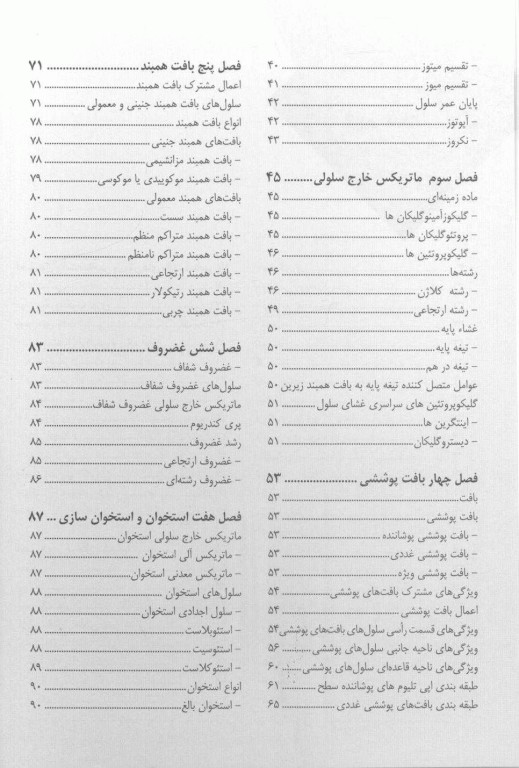 - تقسیم میتوز ۴۰
- تقسیم میوز ۴۱
پایان عمر سلول ۴۲
- آپوتوز ۴۲
- نکروز ۴۳
فصل سوم ماتریکس خارج سلولی ۴۵
ماده زمینه‌ای ۴۵
- گلیکوزآمینوگلیکان ها ۴۵
- پروتئوگلیکان ها ۴۵
- گلیکوپروتئین ها ۴۶
رشته‌ها ۴۶
- رشته کلاژن ۴۶
- رشته ارتجاعی ۴۹
غشاء پایه ۵۰
- تیغه پایه ۵۰
- تیغه در هم ۵۰
عوامل متصل کننده تیغه پایه به بافت همبند زیرین ۵۰
گلیکوپروتئین های سراسری غشای سلول ۵۱
- اینتگرین ها ۵۱
- دیستروگلیکان ۵۱
فصل چهار بافت پوششی ۵۳
بافت ۵۳
بافت پوششی ۵۳
- بافت پوششی پوشاننده ۵۳
- بافت پوششی غددی ۵۳
- بافت پوششی ویژه ۵۳
ویژگی‌های مشترک بافت‌های پوششی ۵۴
اعمال بافت پوششی ۵۴
ویژگی‌های قسمت رأسی سلول‌های بافت‌های پوششی ۵۴
ویژگی‌های ناحیه جانبی سلول‌های پوششی ۵۶
ویژگی‌های ناحیه قاعده‌ای سلول‌های پوششی ۶۰
طبقه بندی اپی تلیوم های پوشاننده سطح ۶۱
طبقه بندی بافت‌های پوششی غددی ۶۵
فصل پنج بافت همبند ۷۱
اعمال مشترک بافت همبند ۷۱
سلول‌های بافت همبند جنینی و معمولی ۷۱
انواع بافت همبند ۷۸
بافت‌های همبند جنینی ۷۸
- بافت همبند مزانشیمی ۷۸
- بافت همبند موکوییدی یا موکوسی ۷۹
بافت‌های همبند معمولی ۸۰
- بافت همبند سست ۸۰
- بافت همبند متراکم منظم ۸۰
- بافت همبند متراکم نامنظم ۸۰
- بافت همبند ارتجاعی ۸۱
- بافت همبند رتیکولار ۸۱
- بافت همبند چربی ۸۱
فصل شش غضروف ۸۳
- غضروف شفاف ۸۳
سلول‌های غضروف شفاف ۸۳
ماتریکس خارج سلولی غضروف شفاف ۸۴
پری کندریوم ۸۴
رشد غضروف ۸۵
- غضروف ارتجاعی ۸۵
- غضروف رشته‌ای ۸۶
فصل هفت استخوان و استخوان سازی ... ۸۷
ماتریکس خارج سلولی استخوان ۸۷
- ماتریکس آلی استخوان ۸۷
- ماتریکس معدنی استخوان ۸۷
سلول‌های استخوان ۸۸
- سلول اجدادی استخوان ۸۸
- استئوبلاست ۸۸
- استئوسیت ۸۸
- استئوکلاست ۸۹
انواع استخوان ۹۰
- استخوان بالغ ۹۰